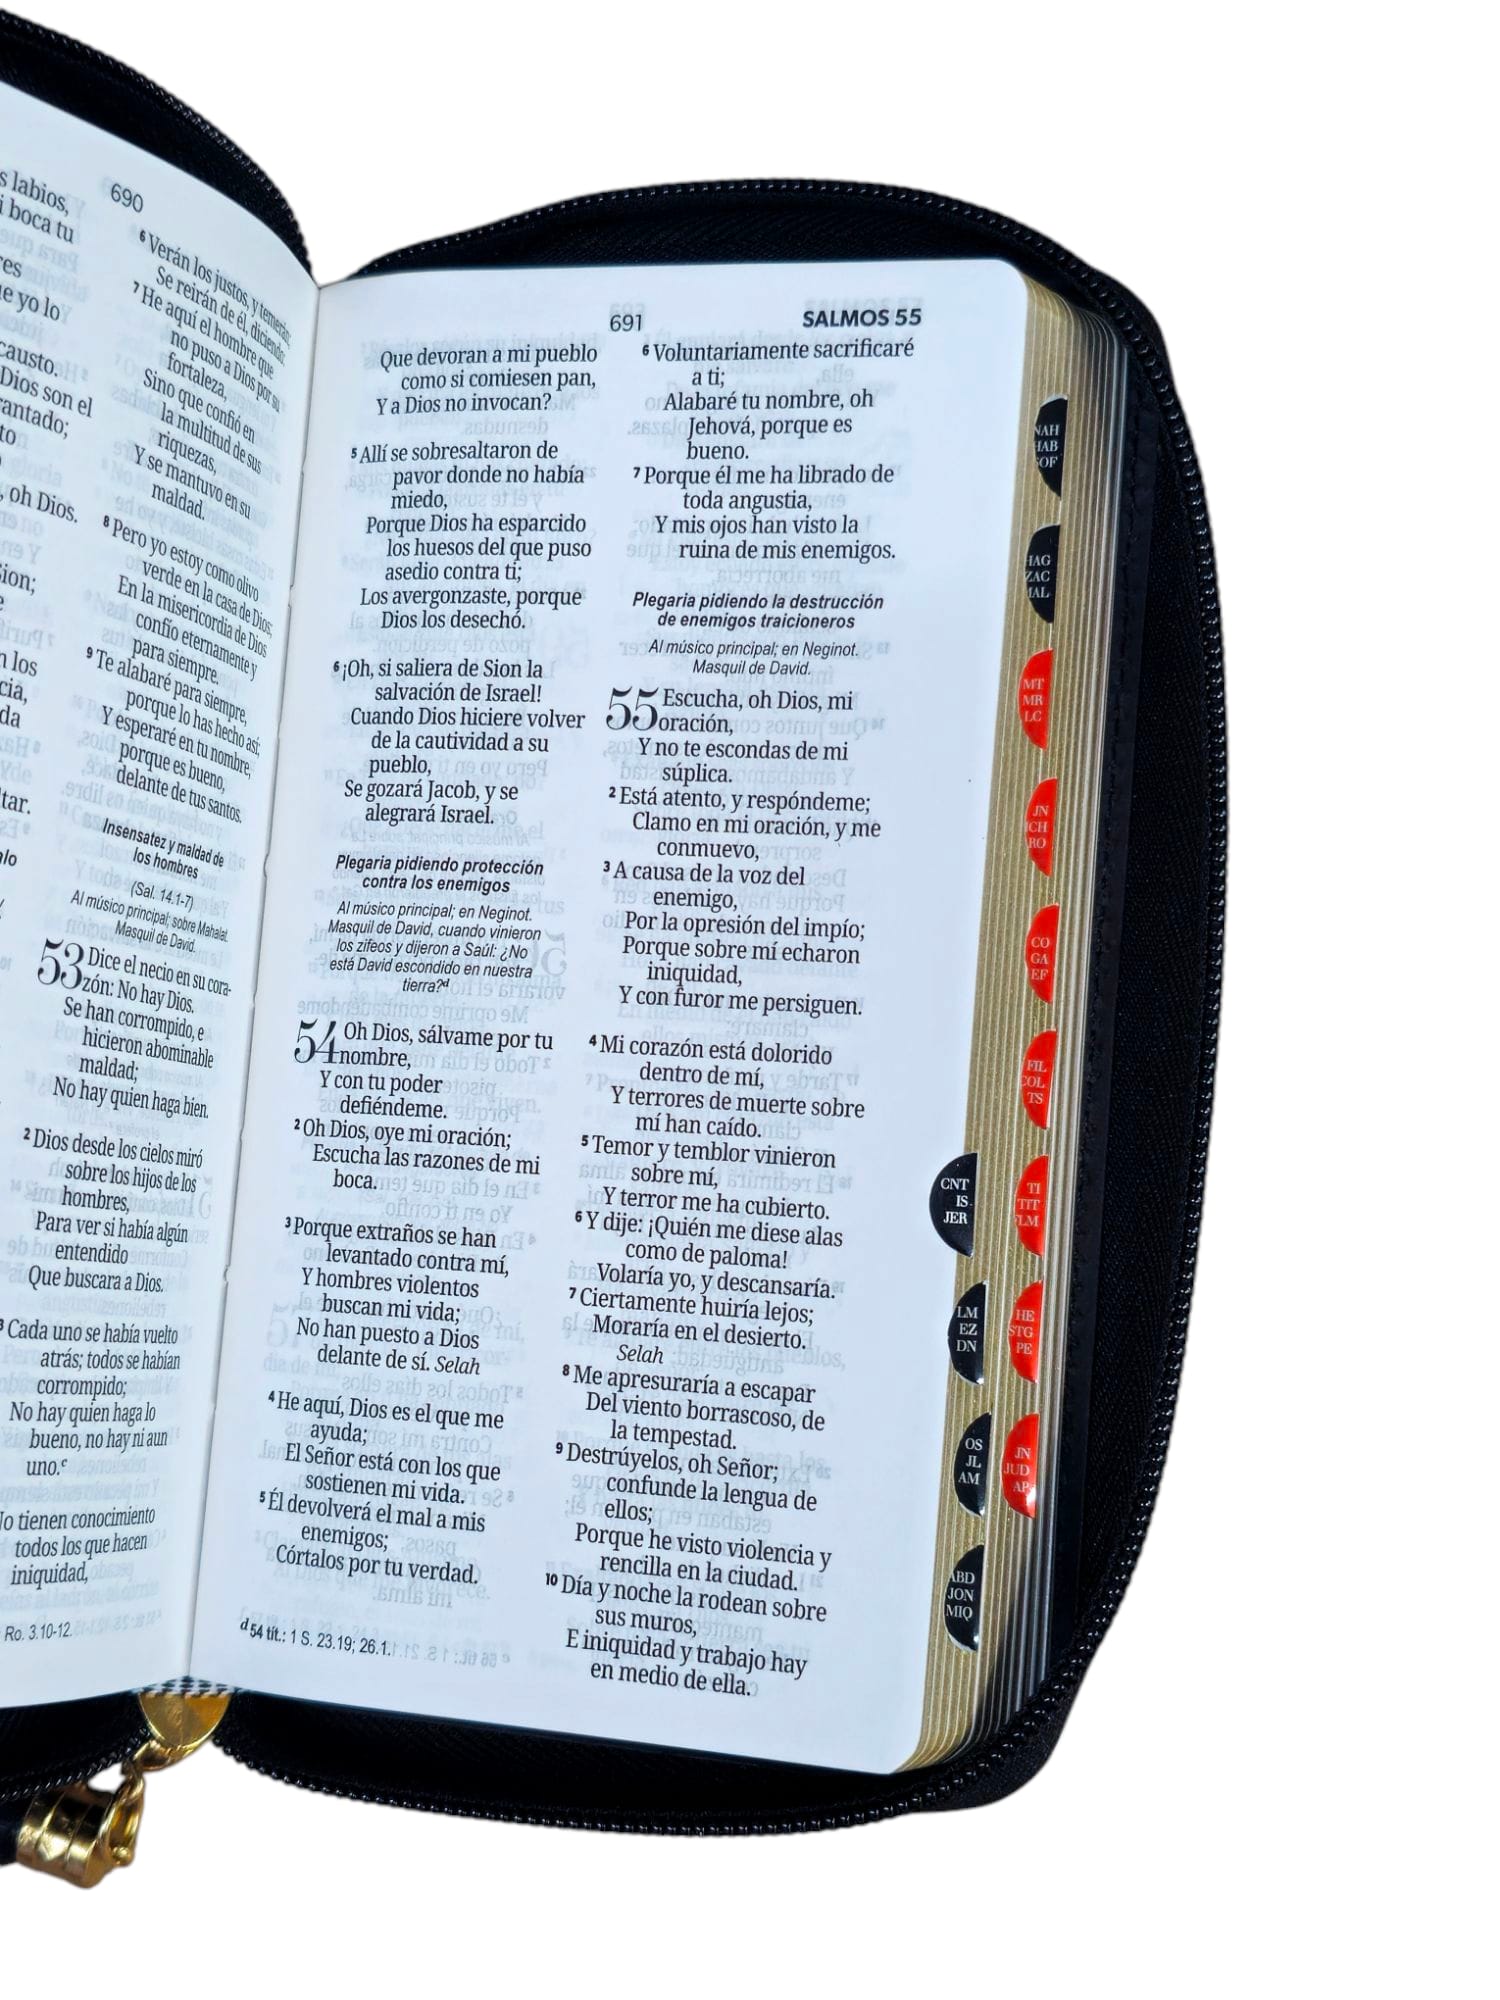 s labios,
i boca tu
res
e yo lo
causto.
Dios son el
antado;
to
, oh Dios.
ion;
e
n los
cia,
da
tar.
lo
690
6 Verán los justos, y temerán;
Se reirán de él, diciendo:
7 He aquí el hombre que
no puso a Dios por su
fortaleza,
Sino que confió en
la multitud de sus
riquezas,
Y se mantuvo en su
maldad.
8 Pero yo estoy como olivo
verde en la casa de Dios;
En la misericordia de Dios
confío eternamente y
para siempre.
9 Te alabaré para siempre,
porque lo has hecho así;
Y esperaré en tu nombre,
porque es bueno,
delante de tus santos.
Insensatez y maldad de
los hombres
(Sal. 14.1-7)
Al músico principal; sobre Mahalat.
Masquil de David.
53 Dice el necio en su cora-
zón: No hay Dios.
Se han corrompido, e
hicieron abominable
maldad;
No hay quien haga bien.
2 Dios desde los cielos miró
sobre los hijos de los
hombres,
Para ver si había algún
entendido
Que buscara a Dios.
3 Cada uno se había vuelto
atrás; todos se habían
corrompido;
No hay quien haga lo
bueno, no hay ni aun
uno.c
No tienen conocimiento
todos los que hacen
iniquidad,
Ro. 3.10-12.
691
SALMOS 55
Que devoran a mi pueblo
como si comiesen pan,
Y a Dios no invocan?
5 Allí se sobresaltaron de
pavor donde no había
miedo,
Porque Dios ha esparcido
los huesos del que puso
asedio contra ti;
Los avergonzaste, porque
Dios los desechó.
6 ¡Oh, si saliera de Sion la
salvación de Israel!
Cuando Dios hiciere volver
de la cautividad a su
pueblo,
Se gozará Jacob, y se
alegrará Israel.
Plegaria pidiendo protección
contra los enemigos
Al músico principal; en Neginot.
Masquil de David, cuando vinieron
los zifeos y dijeron a Saúl: ¿No
está David escondido en nuestra
tierra?d
54 Oh Dios, sálvame por tu
nombre,
Y con tu poder
defiéndeme.
2 Oh Dios, oye mi oración;
Escucha las razones de mi
boca.
3 Porque extraños se han
levantado contra mí,
Y hombres violentos
buscan mi vida;
No han puesto a Dios
delante de sí. Selah
4 He aquí, Dios es el que me
ayuda;
El Señor está con los que
sostienen mi vida.
5 Él devolverá el mal a mis
enemigos;
Córtalos por tu verdad.
d 54 tít.: 1 S. 23.19; 26.1.
6 Voluntariamente sacrificaré
a ti;
Alabaré tu nombre, oh
Jehová, porque es
bueno.
7 Porque él me ha librado de
toda angustia,
Y mis ojos han visto la
ruina de mis enemigos.
Plegaria pidiendo la destrucción
de enemigos traicioneros
Al músico principal; en Neginot.
Masquil de David.
55 Escucha, oh Dios, mi
oración,
Y no te escondas de mi
súplica.
2 Está atento, y respóndeme;
Clamo en mi oración, y me
conmuevo,
3 A causa de la voz del
enemigo,
Por la opresión del impío;
Porque sobre mí echaron
iniquidad,
Y con furor me persiguen.
4 Mi corazón está dolorido
dentro de mí,
Y terrores de muerte sobre
mí han caído.
5 Temor y temblor vinieron
sobre mí,
Y terror me ha cubierto.
6 Y dije: ¡Quién me diese alas
como de paloma!
Volaría yo, y descansaría.
7 Ciertamente huiría lejos;
Moraría en el desierto.
Selah
8 Me apresuraría a escapar
Del viento borrascoso, de
la tempestad.
9 Destrúyelos, oh Señor;
confunde la lengua de
ellos;
Porque he visto violencia y
rencilla en la ciudad.
10 Día y noche la rodean sobre
sus muros,
E iniquidad y trabajo hay
en medio de ella.
CNT
IS
JER
LM
EZ
DN
OS
JL
AM
ABD
JON
MIQ
NAH
HAB
SOF
HAG
ZAC
MAL
MT
MR
LC
JN
HCH
RO
CO
GA
EF
FIL
COL
TS
TI
TIT
FLM
HE
STG
PE
JN
JUD
AP